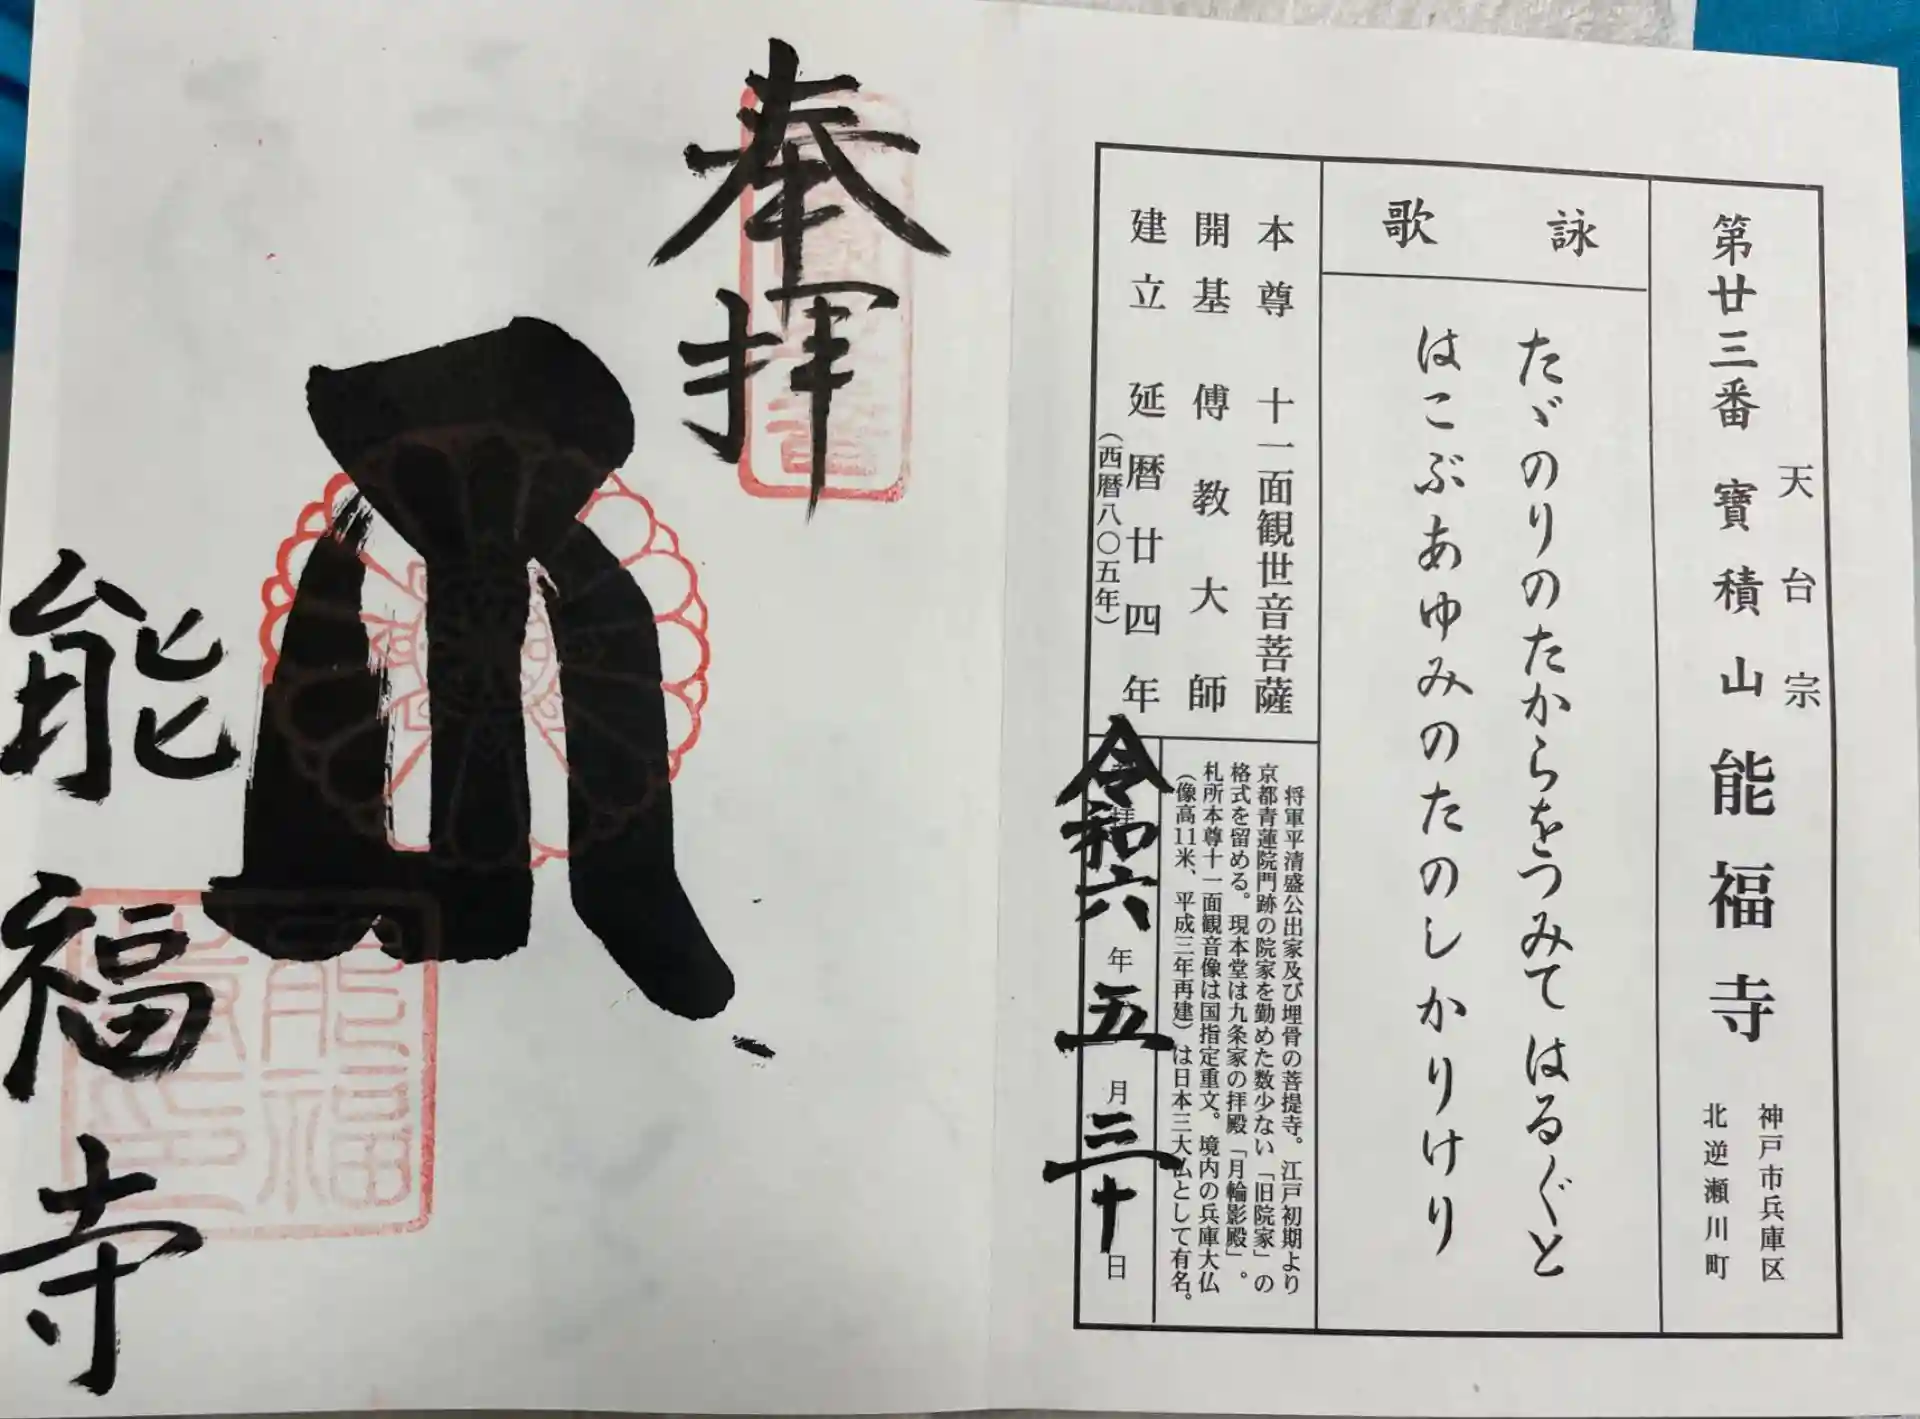 天台宗
第廿三番 寶積山 能福寺
神戸市兵庫区
北逆瀬川町
詠歌
たゞのりのたからをつみてはるぐと
はこぶあゆみのたのしかりけり
本尊 十一面観世音菩薩
開基 傅教大師
建立 延暦廿四年
（西暦八〇五年）
将軍平清盛公出家及び埋骨の菩提寺。江戸初期より
京都青蓮院門跡の院家を勤めた数少ない「旧院家」の
格式を留める。現本堂は九条家の拝殿「月輪影殿」。
札所本尊十一面観音像は国指定重文。境内の兵庫大仏
（像高11米、平成三年再建）は日本三大仏として有名。
令和六年五月三十日
奉拝
能福寺
能福